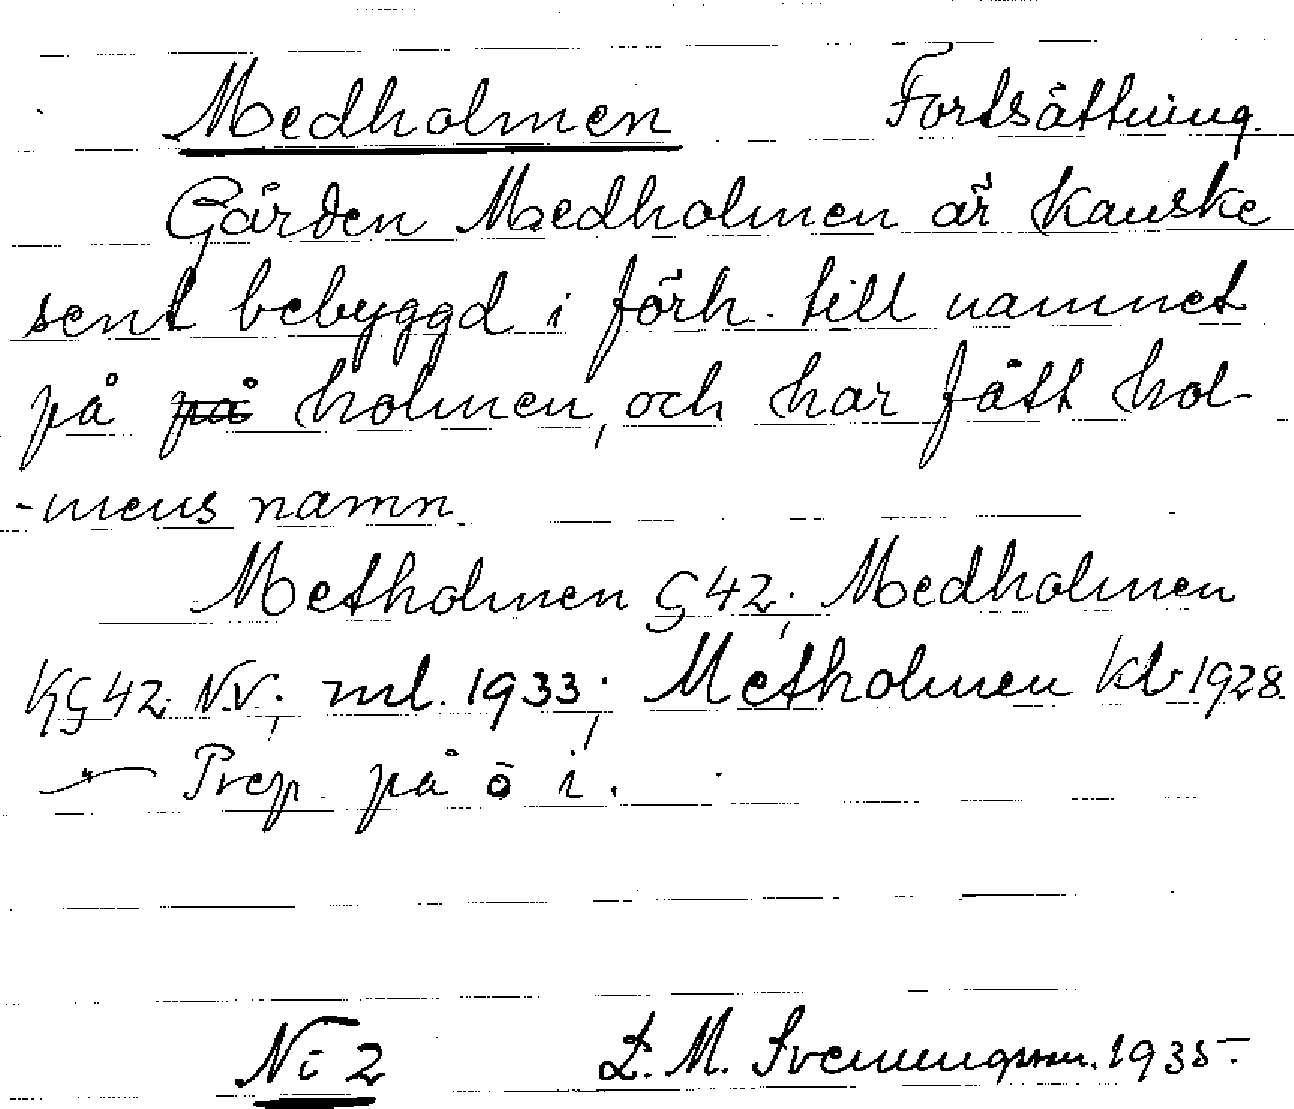 Medholmen Fortsättning.
Gården Medholmen är kanske
sent bebyggd i förh. till namnet
på på holmen, och har fått hol-
-mens namn.
Metholmen G 42; Medholmen
KG 42. N.V.; ml. 1933; Metholmen Kbr 1928.
Prep på ö i.
Ni 2 L. M. Svenungsson. 1935.